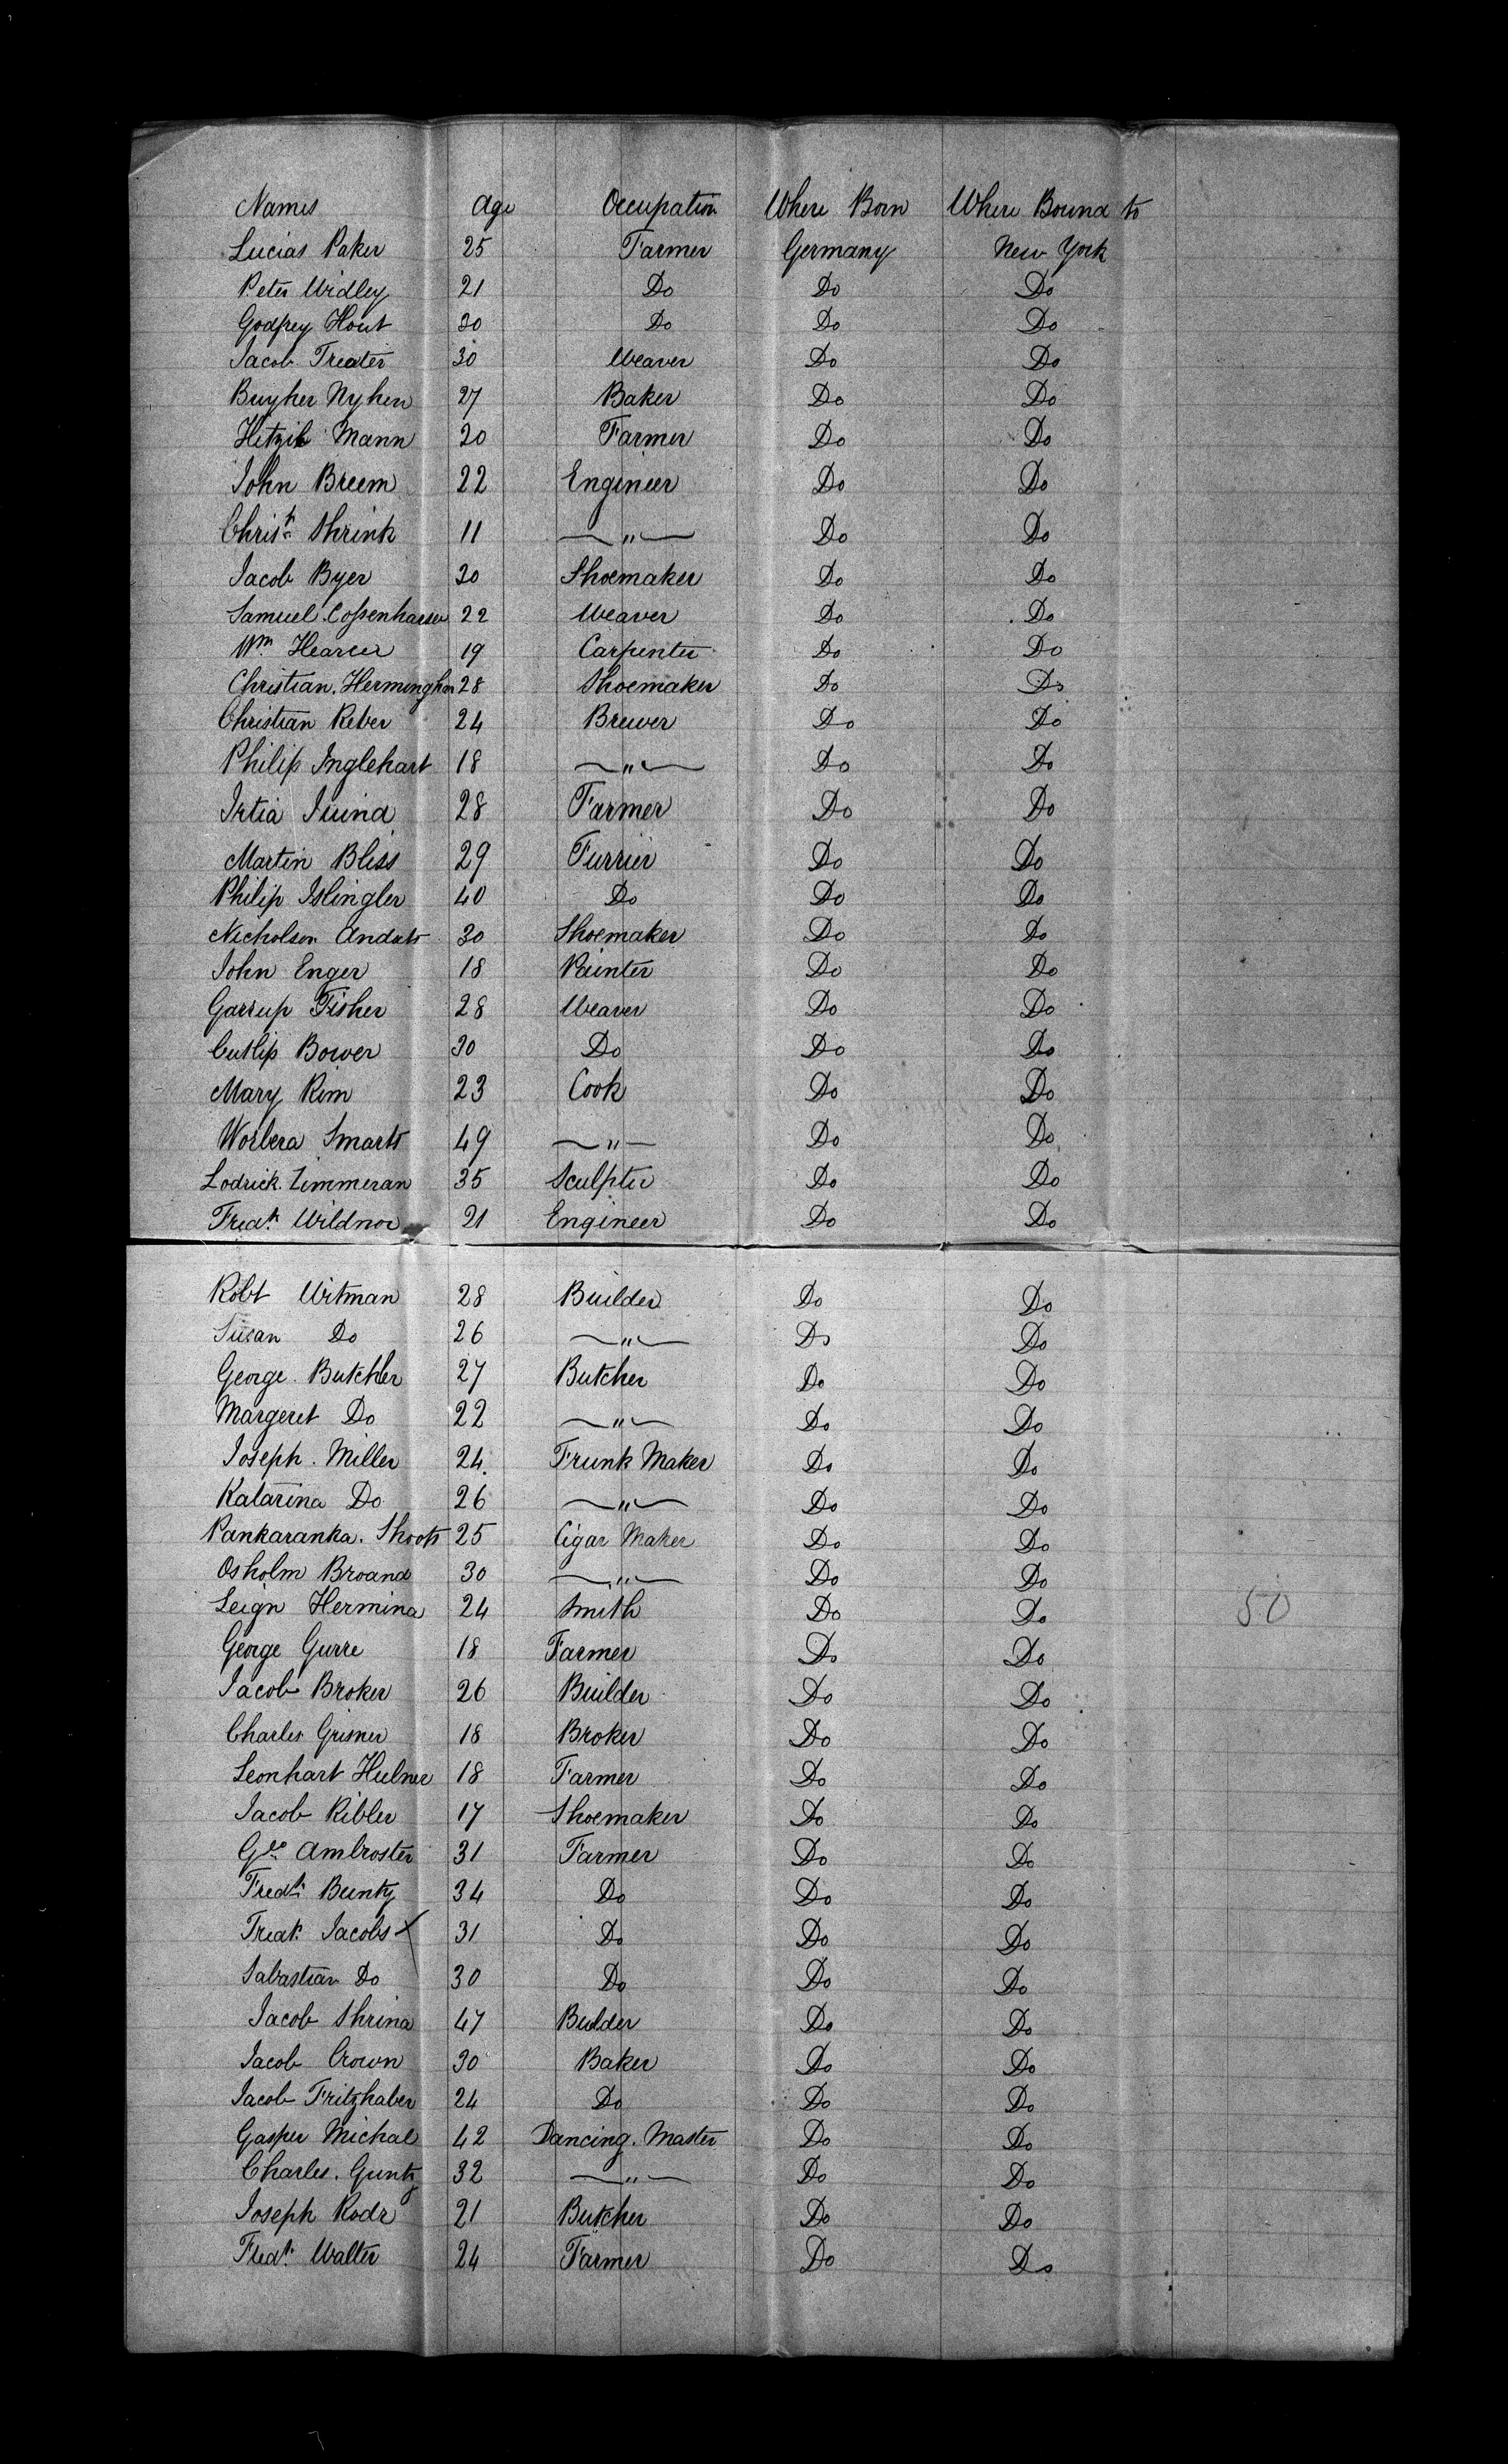 Names Age Occupation Where Born Where Bound to
Lucias Paker 25 Farmer Germany New York
Peter Widley 21 Do Do Do
Godfrey Hout 20 Do Do Do
Jacob Treater 30 Weaver Do Do
Buyher Nyhen 27 Baker Do Do
Hitzil Mann 20 Farmer Do Do
John Breem 22 Engineer Do Do
Christn Shrink 11 〃 Do Do
Jacob Byer 20 Shoemaker Do Do
Samuel 22 Weaver Do Do
Wm 19 Carpenter Do Do
Christian. Herminghm 28 Shoemaker Do Do
Christian Reber 24 Brewer Do Do
Philip Inglehart 18 〃 Do Do
Irtia 28 Farmer Do Do
Martin Bliss 29 Furrier Do Do
Philip Islingler 40 Do Do Do
Nicholson 30 Shoemaker Do Do
John Enger 18 Painter Do Do
Garrup Fisher 28 Weaver Do Do
Cutlip Bower 30 Do Do Do
Mary Rim 23 Cook Do Do
Worbera Smarts 49 〃 Do Do
Lodrick. Zimmeran 35 Sculpter Do Do
Fredk Wildnor 21 Engineer Do Do
Robt Witman 28 Builder Do Do
Susan Do 26 〃 Do Do
George. Butchler 27 Butcher Do Do
Margeret Do 22 〃 Do Do
Joseph. Miller 24. Trunk Maker Do Do
Katarina Do 26 〃 Do Do
Pankaranka. Shoots 25 Cigar Maker Do Do
Osholm Broand 30 〃 Do Do
Leign Hermina 24 Smith Do Do 50
George Gurre 18 Farmer Do Do
Jacob Broker 26 Builder Do Do
Charles Grisner 18 Broker Do Do
Leonhart Hulner 18 Farmer Do Do
Jacob Ribler 17 Shoemaker Do Do
Geo Ambroster 31 Farmer Do Do
Fredk Buntz 34 Do Do Do
Fredk Jacobs X 31 Do Do Do
Sabastian Do 30 Do Do Do
Jacob Shrina 47 Bulder Do Do
Jacob Crown 30 Baker Do Do
Jacob Fritzhaber 24 Do Do Do
Gasper Michal 42 Dancing. Master Do Do
Charles. Guntz 32 〃 Do Do
Joseph Rodr 21 Butcher Do Do
Fredk Walter 24 Farmer Do Do